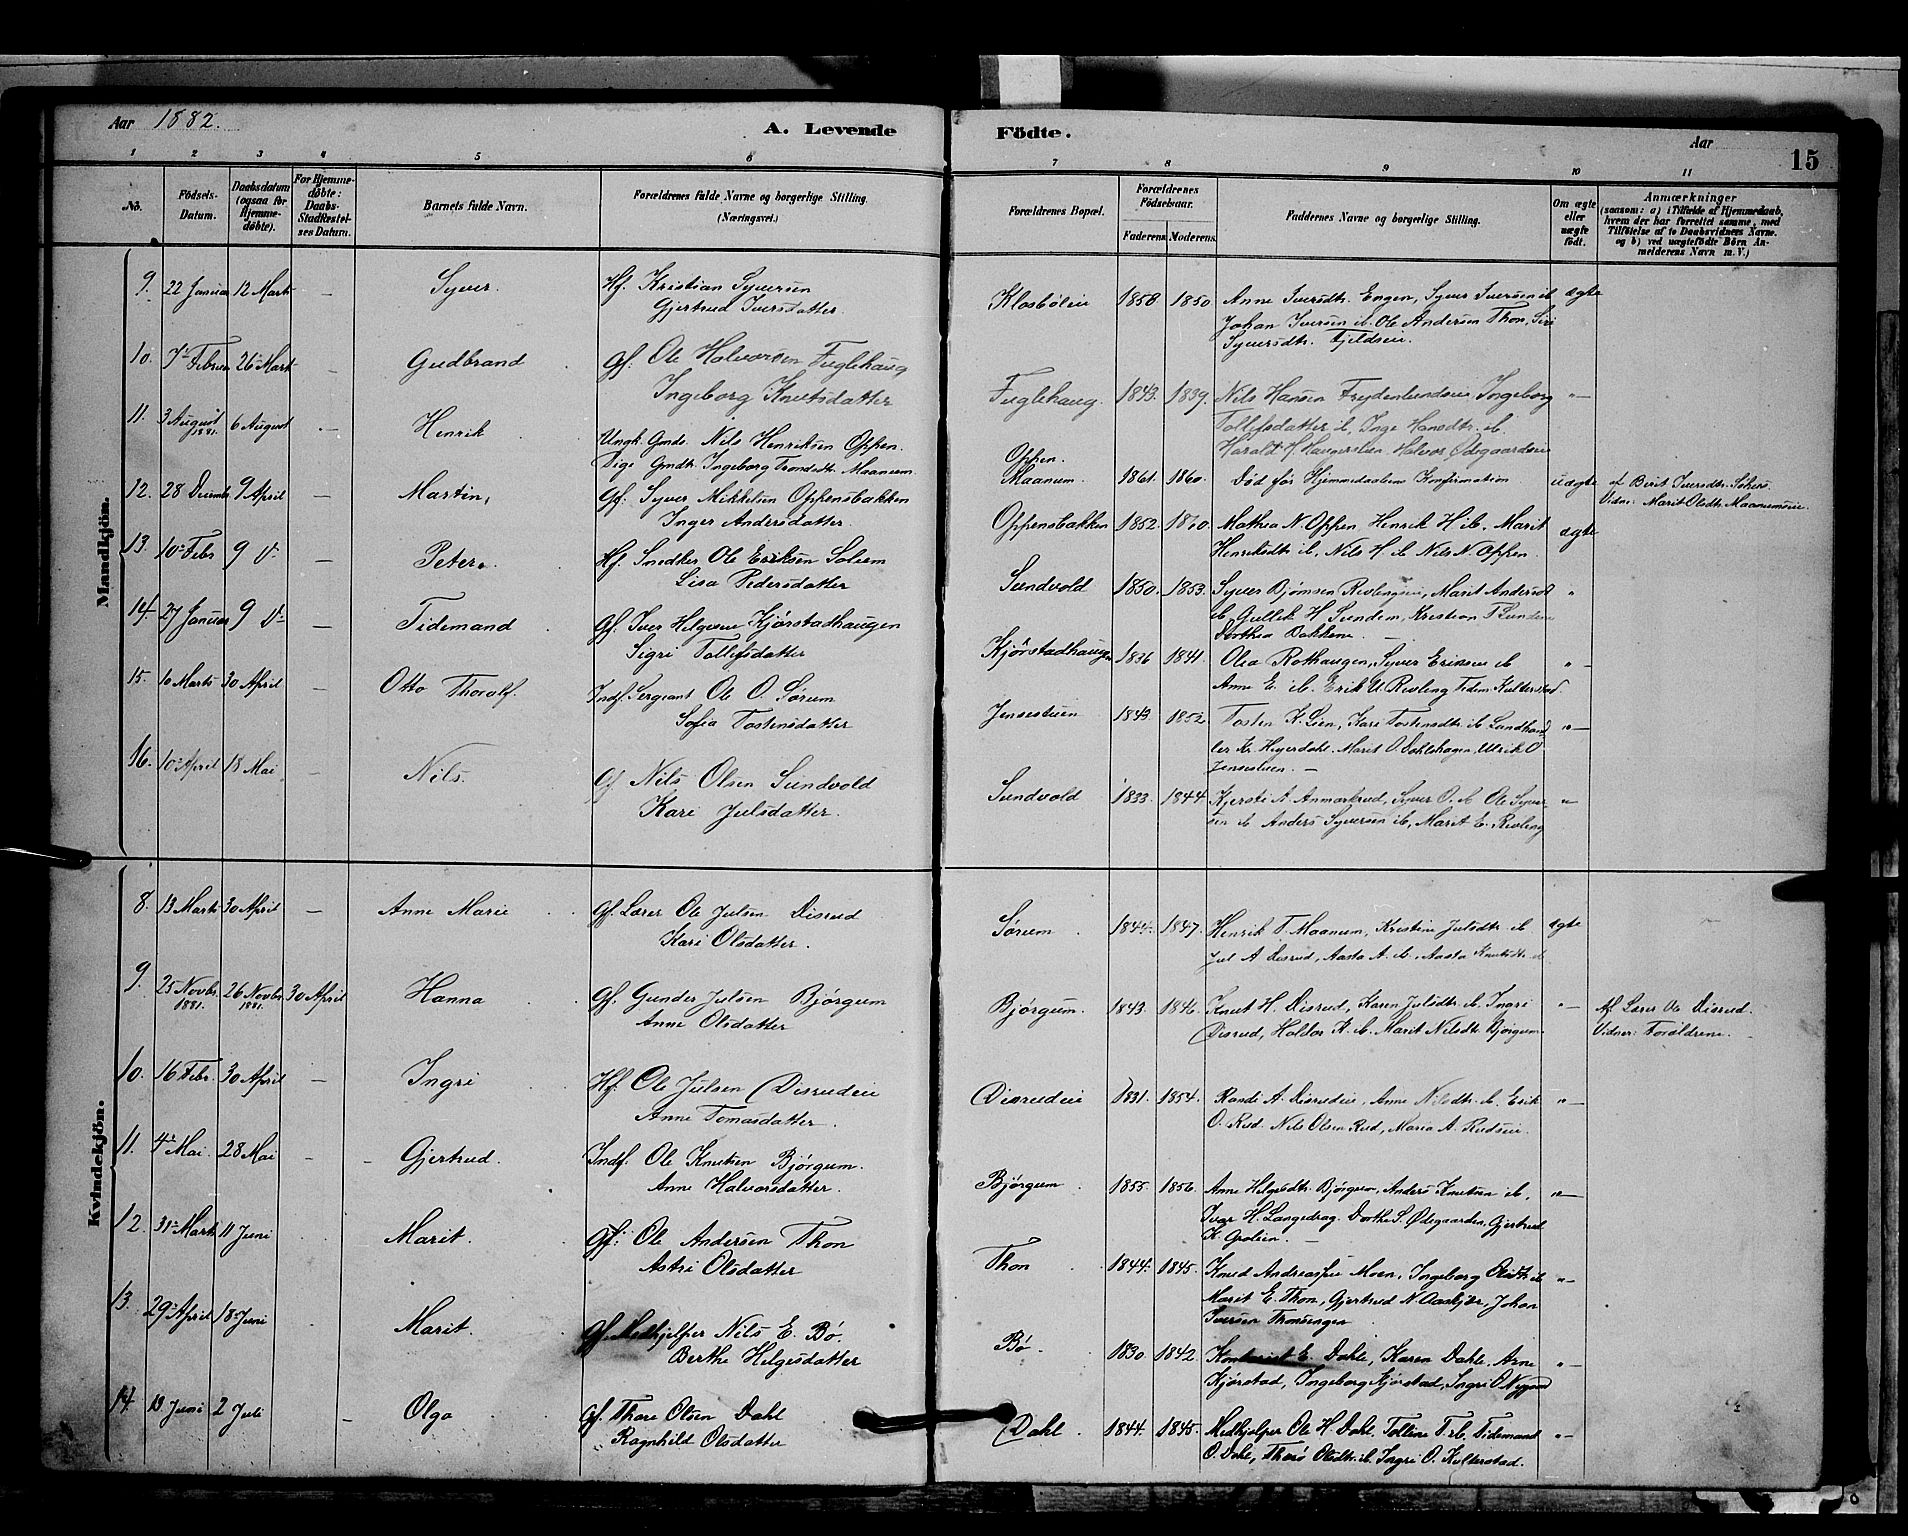 Aar 1882.
A. Levende Födte.
Aar
15
1 2 3 4 5 6 7 8 9 10 11
No.
Födsels-Datum.
Daabsdatum (ogsaa for Hjemme-döbte).
For Hjemme-döbte: Daabs-Stadfæstel-ses Datum.
Barnets fulde Navn.
Forældrenes fulde Navne og borgerlige Stilling. (Næringsvei.)
Forældrenes Bopæl.
Forældrenes Födselsaar.
Faderens. Moderens.
Faddernes Navne og borgerlige Stilling.
Om ægte eller uægte födt.
Anmærkninger (saasom: a) i Tilfælde af Hjemmedaab, hvem der har forrettet samme, med Tilföielse af to Daabsvidners Navne. og b) ved uægtefödte Börn An-melderens Navn m. V.)
Mandkjön.
9. 22 Januar 12 Marts — Syver. Hf. Kristian Syversen Klosbøleie 1858 1850 Anne Iversdtr. Engen, Syver Iversen ib. ægte
Gjertrud Iversdatter. Johan Iversen ib. Ole Andersen Thon, Siri
Syversdtr. Fjeldseie.
10. 7 Februar 26 Marts — Gudbrand Gf. Ole Halvorsen Fuglehaug Fuglehaug. 1843. 1839. Nils Hansen Frydenlundseie Ingeborg "—
Ingeborg Knutsdatter Tollefsdatter ib, Inge Hansdtr. ib.
Harald H. Haugerstuen. Halvor Ødegaardseie
11. 3 August 1881. 6 August — Henrik Ungk. Gmde. Nils Henriksen Oppen. Oppen.
Pige Gmdtr. Ingeborg Trondsdtr. Maanum. Maanum. 1861. 1860. Død før Hjemmedaabens Konfirmation uægte af Berit Iversdtr.
Vidner: Marit Olsdtr. Maanumseie.
12. 28 Decemb. 9 April — Martin, Gf. Syver Mikkelsen Oppensbakken Oppensbakken 1852. Mathea N. Oppen, Henrik H ib. Marit ægte
Inger Andersdatter. Henriksdtr ib, Nils H ib Nils N. Oppen.
13. 10 Febr 9 — Peter. Hf. Snedker Ole Eriksen Soleim Sundvold 1850. 1853. Syver Bjørnsen Rivlengseie, Marit Andersd "
Lisa Pedersdatter ib, Gullik H Sundem, Kristian T Sundem
Dorthea Bakkene. —
14. 27 Januar 9 — Tidemand Gf. Iver Helgesen Kjørstadhaugen Kjørstadhaugen 1836 1841. Olia Rothaugen, Syver Eriksen ib "—
Sigri Tollefsdatter Anne E. ib. Erik U. Rivleng Tidem. Kulterstad.
15. 10 Marts 30 April — Otto Thoralf. Indf. Sergeant Ole O. Sørum Jensestuen 1843. 1852. Tosten K. Lien, Kari Tostensdtr. ib. Landhand "—
Sofia Tostensdatter ler Kr. Heyerdahl. Marit O. Dahlehagen, Ulrik O
Jensestuen. —
16. 10 April 18 Mai — Nils. Gf Nils Olsen Sundvold Sundvold 1833. 1844. Kjersti A. Anmarkrud, Syver O. ib Ole Syver- "
Kari Julsdatter. sen ib Anders Syversen ib, Marit E. Rivleng
Kvindekjön.
8. 13 Marts 30 April — Anne Marie Gf. Lærer Ole Julsen Disrud Sørum 1844. 1847. Henrik T. Maanum, Kristine Julsdtr. ib ægte
Kari Olsdatter. Jul A Disrud, Aasta A. ib., Aasta Knutsdtr ib
9. 25 Novbr. 1881. 26 Novbr. 1881. 30 April Hanna Gf. Gunder Julsen Bjørgum Bjørgum. 1843. 1846. Knut H. Disrud, Karen Julsdtr. ib. Ingri "— Af Lærer Ole Disrud.
Anne Olsdatter Disrud, Haldor K. ib. Marit Nilsdtr. Bjørgum Vidner: Forældrene.
10. 16 Febr. 30 April — Ingri Hf. Ole Julsen Disrudeie Disrudeie 1831. 1854. Randi A. Disrudeie, Anne Nilsdtr. ib. Erik "—
Anne Tomasdatter. O. Rud. Nils Olsen Rud, Maria A. Rudseie.
11. 4 Mai 28 Mai — Gjertrud. Indf. Ole Knutsen Bjørgum. Bjørgum. 1855. 1856. Anne Helgesdtr. Bjørgum, Anders Knutsen ib, "—
Anne Halvorsdatter. Ivar H. Langedrag. Dorthe S. Ødegaarden, Gjertrud
K. Grolien. —
12. 31 Marts 11 Juni Marit. Gf. Ole Andersen Thon Thon 1844. 1845. Knud Andreassen Moen, Ingeborg Olsdtr ib "—
Astri Olsdatter Marit E. Thon, Gjertrud N. Aaskjær, Johan
Iversen Thonsengen.
13. 29 April 18 Juni Marit. Gf. Medhjelper Nils E. Bø. Bø. 1830. 1842 E. Dahle, Karen Dahle. Arne "—
Berthe Helgesdatter Kjørstad, Ingeborg Kjørstad, Ingri O. Nygaard
14. 13 Juni 2 Juli — Olga Gf. Thore Olsen Dahl Dahl. 1844. 1845. Medhjelper Ole H. Dahl, Tolline T. ib, Tidemand "—
Ragnhild Olsdatter O. Dahl, Tharø Olsdtr. ib. Ingri O. Kulterstad.